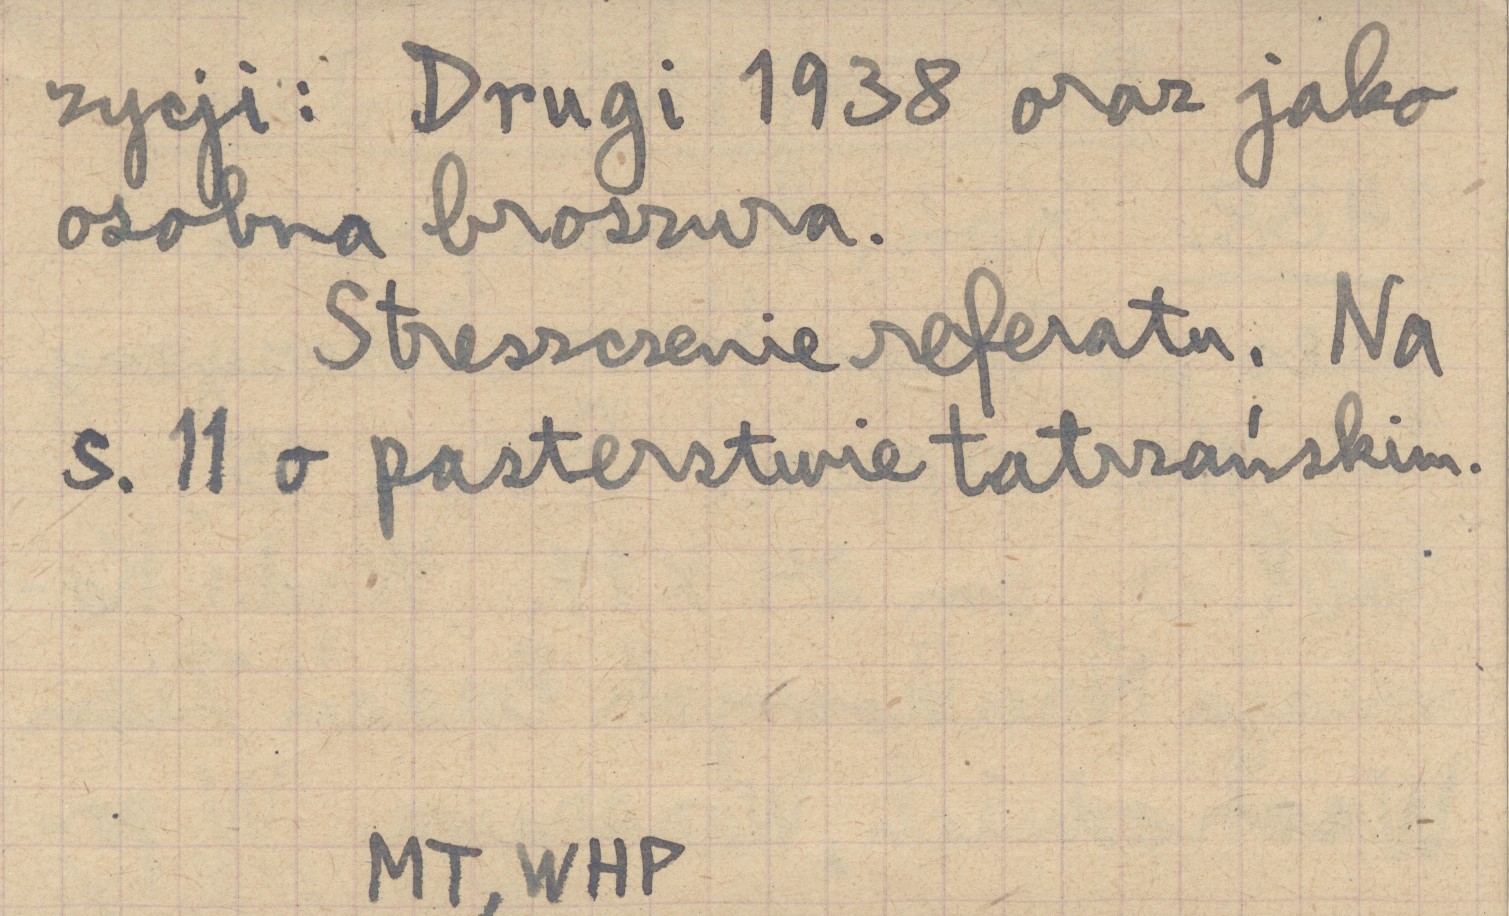 zycji: Drugi 1938 oraz jako
osobna broszura.
Streszczenie referatu. Na
s. 11 o pasterstwie tatrzańskim.
MT, WHP